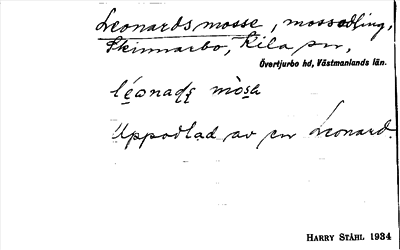 Leonardsmosse, mossodling,
Skinnarbo, Kila sn,
Övertjurbo hd, Västmanlands län.
léonaḍṣ mòsa
Uppodlad av en Leonard.
HARRY STÅHL 1934